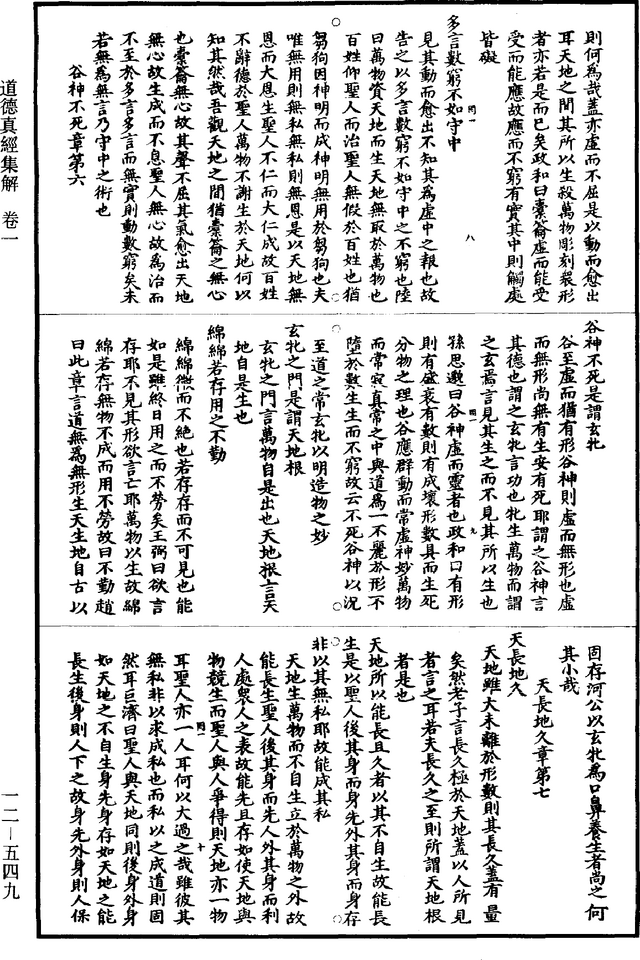 則何爲哉蓋亦虛而不屈是以動而愈出
耳天地之間其所以生殺萬物彫刻衆形
者亦若是而已矣政和曰橐籥虛而能受
受而能應故應而不窮有實其中則觸處
皆礙
多言數窮不如守中
見其動而愈出不知其爲虛中之報也故
告之以多言數窮不如守中之不窮也陸
曰萬物資天地而生天地無取於萬物也
百姓仰聖人而治聖人無假於百姓也猶
芻狗因神明而成神明無用於芻狗也夫
唯無用則無私無私則無恩是以天地無
恩而大恩生聖人不仁而大仁成故百姓
不辭德於聖人萬物不謝生於天地何以
知其然哉吾觀天地之間猶橐籥之無心
也橐籥無心故其聲不屈其氣愈出天地
無心故生成而不息聖人無心故爲治而
不至於多言多言而無實則動數窮矣未
若無爲無言乃守中之術也
谷神不死章第六
谷神不死是謂玄牝
谷至虛而猶有形谷神則虛而無形也虛
而無形尚無有生安有死耶謂之谷神言
其德也謂之玄牝言功也牝生萬物而謂
之玄焉言見其生之而不見其所以生也
孫思邈曰谷神虛而靈者也政和曰有形
則有盛衰有數則有成壞形數具而生死
分物之理也谷應群動而常虛神妙萬物
而常寂真常之中與道爲一不麗於形不
墮於數生生而不窮故云不死谷神以況
至道之常玄牝以明造物之妙
玄牝之門是謂天地根
玄牝之門言萬物自是出也天地根言天
地自是生也
綿綿若存用之不勤
綿綿微而不絶也若存存而不可見也能
如是雖終日用之而不勞矣王弼曰欲言
存耶不見其形欲言亡耶萬物以生故綿
綿若存無物不成而用不勞故曰不勤趙
曰此章言道無爲無形生天生地自古以
固存河公以玄牝爲口鼻養生者尚之何
其小哉
天長地久章第七
天長地久
天地雖大未離於形數則其長久蓋有量
矣然老子言長久極於天地蓋以人所見
者言之耳若夫長久之至則所謂天地根
者是也
天地所以能長且久者以其不自生故能長
生是以聖人後其身而身先外其身而身存
非以其無私耶故能成其私
天地生萬物而不自生立於萬物之外故
能長生聖人後其身而先人外其身而利
人處衆人之表故能先且存如使天地與
物競生而聖人與人爭得則天地亦一物
耳聖人亦一人耳何以大過之哉雖彼其
無私非以求成私也而私以之成道則固
然耳巨濟曰聖人與天地同則後身外身
如天地之不自生身先身存如天地之能
長生後身則人下之故身先外身則人保
道德真經集解 卷一
一二－五四九